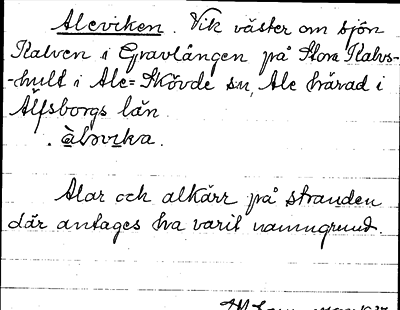 Aleviken. Vik väster om sjön
Kalven i Gravlången på Stora Kalvs-
-hult i Ale-Skövde sn, Ale härad i
Älfsborgs län
. àləvika.
Alar och alkärr på stranden
där antages ha varit namngrund.